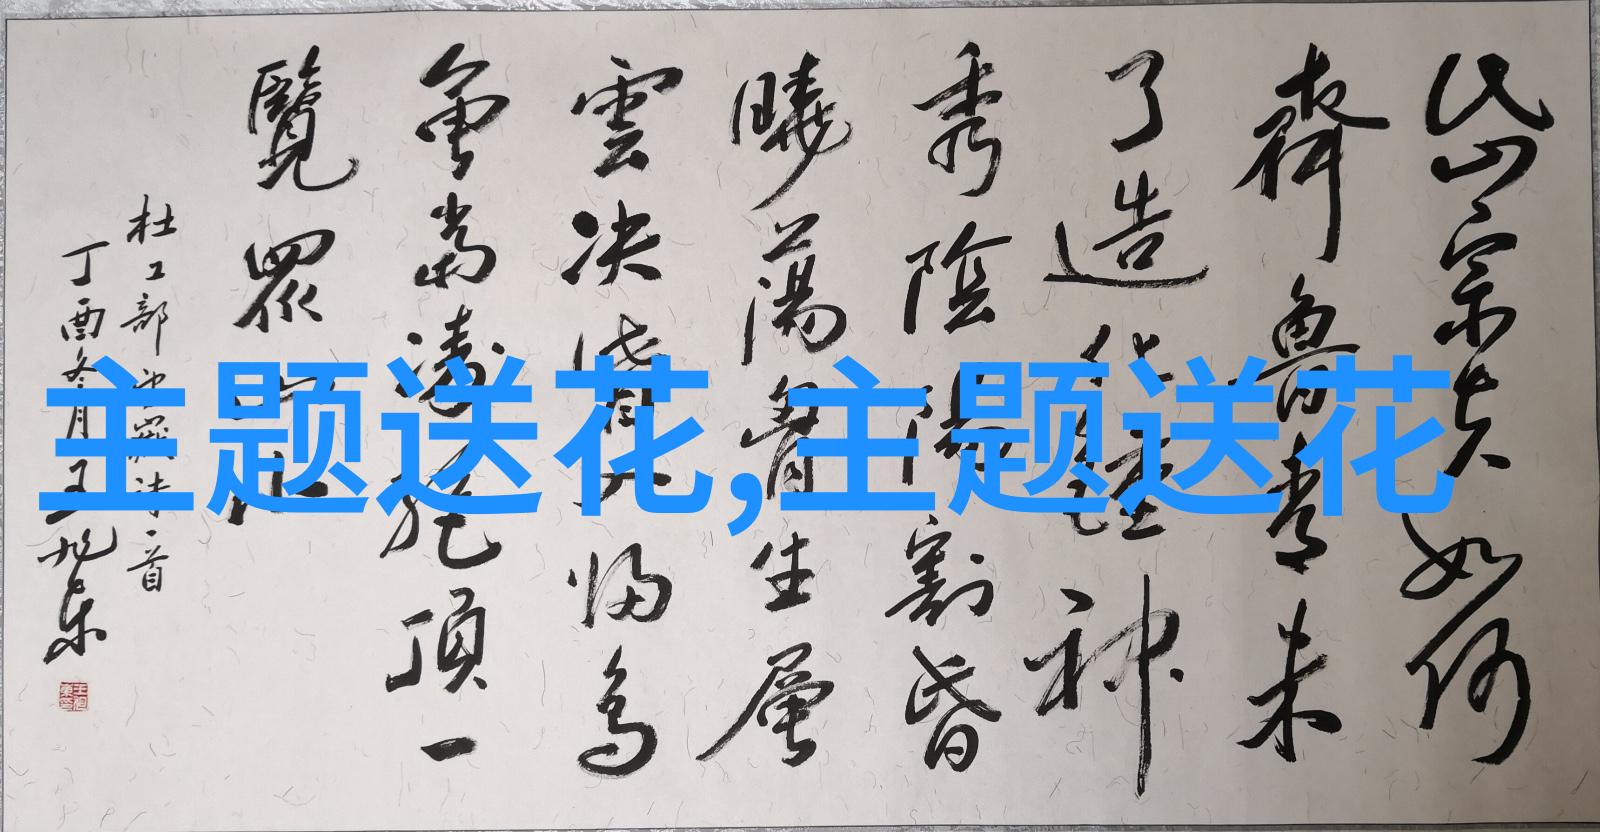 岱宗夫如何
齊魯青未
了造化鍾神
秀陰陽割昏
曉蕩胷生層
雲决眥入歸鳥
會當凌絶頂一
覽眾山小
杜工部望嶽诗一首
丁酉冬月王旭东
主题送花,主题送花